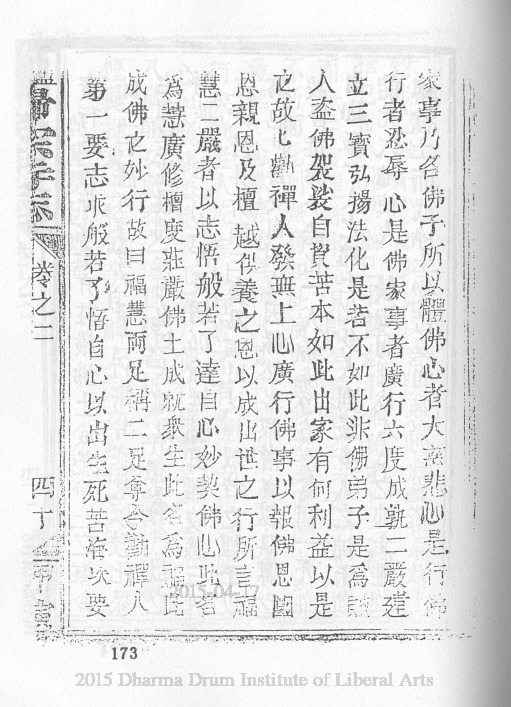 家事乃名佛子所以體佛心者大慈悲心是行佛
行者忍辱心是佛家事者廣行六度成就二嚴建
立三寶弘揚法化是若不如此非佛弟子是為
人盜佛袈裟自貽苦本如此出家有何利益以是
之故七勸禪人發無上心廣行佛事以報佛恩國
恩親恩及檀越供養之恩以成出世之行所言福
慧二嚴者以志悟般若了達自心妙契佛心此名
為慧廣修檀度莊嚴佛土成就眾生此名為福此
成佛之妙行故曰福慧兩足稱二足尊今勸禪人
第一要志求般若了悟自心以出生死苦海次要
卷之二
四十
173
2015-04-17
2015 Dharma Drum Institute of Liberal Arts